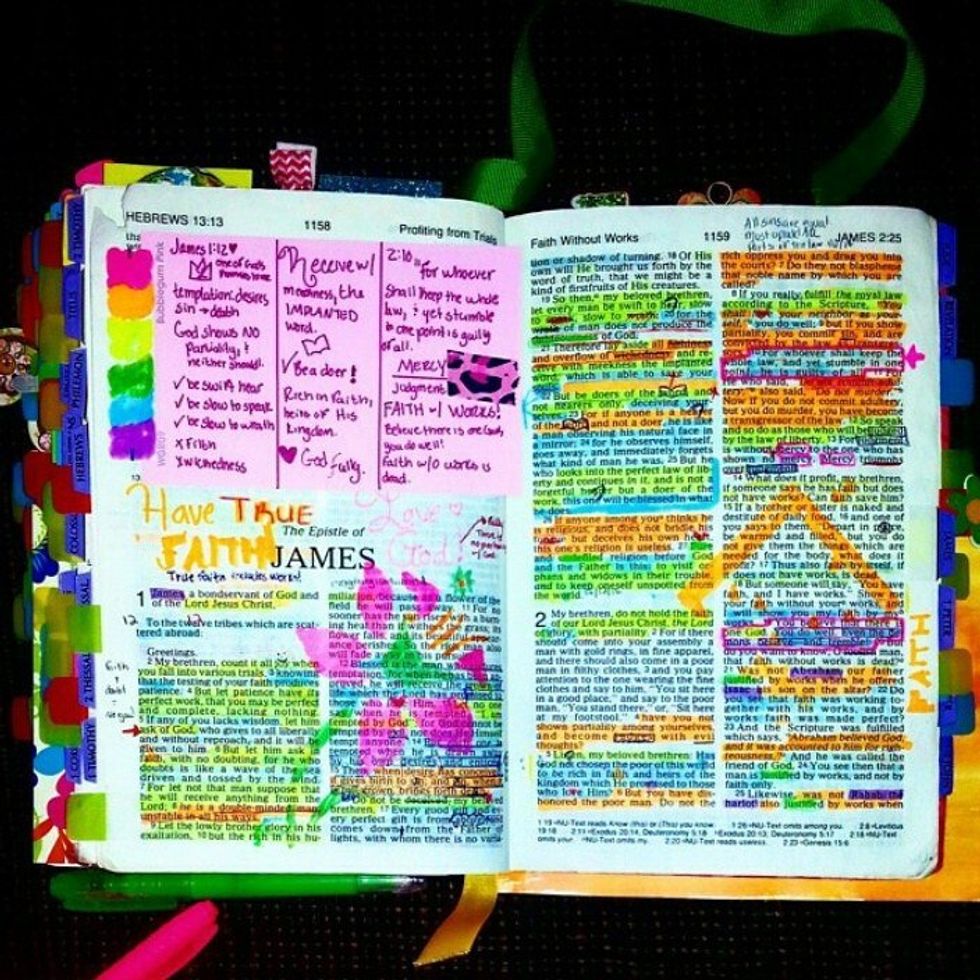 HEBREWS 13:13
1158
Profiting from Trials
James 1:12
temptation: desires
sin → death
God shows NO
Partiality, &
neither should.
✓ be swift hear
✓ be slow to speak
✓ be slow to wrath
x Filth
x wickedness
Receive w/
meekness, the
IMPLANTED
word.
✓ Be a doer!
Rich in Faith,
heirs of His
Kingdom.
God
2:10
"for whoever
shall keep the whole
law, & yet stumble
in one point is guilty
of all.
MERCY
judgment
FAITH w/ WORKS!
Believe there is one God,
you do well!
Faith w/o works is
dead.
Bubblegum Pink
HAVE TRUE
FAITH
True faith includes works!
Love
God!
The Epistle of
JAMES
1 James, a bondservant of God and
of the Lord Jesus Christ,
To the twelve tribes which are scat-
tered abroad:
Greetings.
2 My brethren, count it all joy when
you fall into various trials, 3 knowing
that the testing of your faith produces
patience. 4 But let patience have its
perfect work, that you may be perfect
and complete, lacking nothing.
5 If any of you lacks wisdom, let him
ask of God, who gives to all liberally
and without reproach, and it will be
given to him. 6 But let him ask in
faith, with no doubting, for he who
doubts is like a wave of the sea
driven and tossed by the wind.
7 For let not that man suppose that
he will receive anything from the
Lord; 8 he is a double-minded man,
unstable in all his ways.
9 Let the lowly brother glory in his
exaltation, 10 but the rich in his hu-
miliation, because as a flower of the
field he will pass away. 11 For no
sooner has the sun
heat than it withers the grass; its
flower falls, and its beautiful
perishes. So the rich man also
will fade away
12 Blessed is the man who
temptation; for when he
proved, he will receive the
life which the Lord has
13 Let no one say when he is tempted, "I
tempted by God"; for God cannot be
tempted by evil, nor does He Himself
tempt anyone.
tempted when
15 Then, when desire has conceived, it
gives birth to sin; and sin, when
grown, brings forth death.
16 Do not be deceived, my beloved
brethren. 17 Every good gift and ev-
ery perfect gift is from above, and
comes down from the Father of
lights, with whom there is no varia-
Faith Without Works
1159
JAMES 2:25
All sins are equal.
tion or shadow of turning. 18 Of His
own will He brought us forth by the
word of truth, that we might be a
kind of firstfruits of His creatures.
19 So then, my beloved brethren,
let every man be swift to hear, slow
to speak, slow to wrath; 20 for the
wrath of man does not produce the
righteousness of God.
21 Therefore lay aside all filthiness
and overflow of wickedness, and re-
ceive with meekness the implanted
word, which is able to save your
22 But be doers of the word, and
not hearers only, deceiving your-
selves. 23 For if anyone is a hearer
of the word and not a doer, he is like
a man observing his natural face in
a mirror; 24 for he observes himself,
goes away, and immediately forgets
what kind of man he was. 25 But he
who looks into the perfect law of lib-
erty and continues in it, and is not a
forgetful hearer but a doer of the
work, this one will be blessed in what
he does.
26 If anyone among you thinks he
is religious, and does not bridle his
tongue but deceives his own heart,
this one's religion is useless. 27 Pure
and undefiled religion before God
and the Father is this: to visit or-
phans and widows in their trouble,
and to keep oneself unspotted from
the world.
2 My brethren, do not hold the faith
of our Lord Jesus Christ, the Lord
of glory, with partiality. 2 For if there
should come into your assembly a
man with gold rings, in fine apparel,
and there should also come in a poor
man in filthy clothes, 3 and you pay
attention to the one wearing the fine
clothes and say to him, "You sit here
in a good place," and say to the poor
man, "You stand there," or, "Sit here
at my footstool," 4 have you not
shown partiality among yourselves,
and become judges with evil
thoughts?
5 Listen, my beloved brethren: Has
God not chosen the poor of this world
to be rich in faith and heirs of the
kingdom which He promised to those
who love Him? 6 But you have dis-
honored the poor man. Do not the
rich oppress you and drag you into
the courts? 7 Do they not blaspheme
that noble name by which you are
called?
8 If you really fulfill the royal law
according to the Scripture, "You shall
love your neighbor as your-
self," you do well; 9 but if you show
partiality, you commit sin, and are
convicted by the law as transgressors.
10 For whoever shall keep the
whole law, and yet stumble in one
point, he is guilty of all. 11 For
He who said, "Do not commit adul-
tery," also said, "Do not murder."
Now if you do not commit adultery,
but you do murder, you have become
a transgressor of the law. 12 So speak
and so do as those who will be judged
by the law of liberty. 13 For judgment
is without mercy to the one who has
shown no mercy. Mercy triumphs
over judgment.
14 What does it profit, my brethren,
if someone says he has faith but does
not have works? Can faith save him?
15 If a brother or sister is naked and
destitute of daily food, 16 and one of
you says to them, "Depart in peace,
be warmed and filled," but you do
not give them the things which are
needed for the body, what does it
profit? 17 Thus also faith by itself, if
it does not have works, is dead.
18 But someone will say, "You have
faith, and I have works." Show me
your faith without your works, and
I will show you my faith by my
works. 19 You believe that there is
one God. You do well. Even the de-
mons believe—and tremble!
do you want to know, O foolish man,
that faith without works is dead?
21 Was not Abraham our father
justified by works when he offered
Isaac his son on the altar? 22 Do
you see that faith was working to-
gether with his works, and by
works faith was made perfect?
23 And the Scripture was fulfilled
which says, "Abraham believed God,
and it was accounted to him for righ-
teousness." And he was called the
friend of God. 24 You see then that a
man is justified by works, and not by
faith only.
25 Likewise, was not Rahab the
harlot also justified by works when
FAITH
1:19 NU-Text reads Know this or This you know.
1:26 NU-Text omits among you.
2:8 Leviticus
19:18
2:11 Exodus 20:14; Deuteronomy 5:18
Exodus 20:13; Deuteronomy 5:17
2:18 NU-Text
omits your.
NU-Text omits my.
2:20 NU-Text reads useless.
2:23 Genesis 15:6
2 TIMOTHY
TITUS
PHILEMON
HEBREWS
COLOSS
2 THESSAL
1 TIMOTHY
PETER